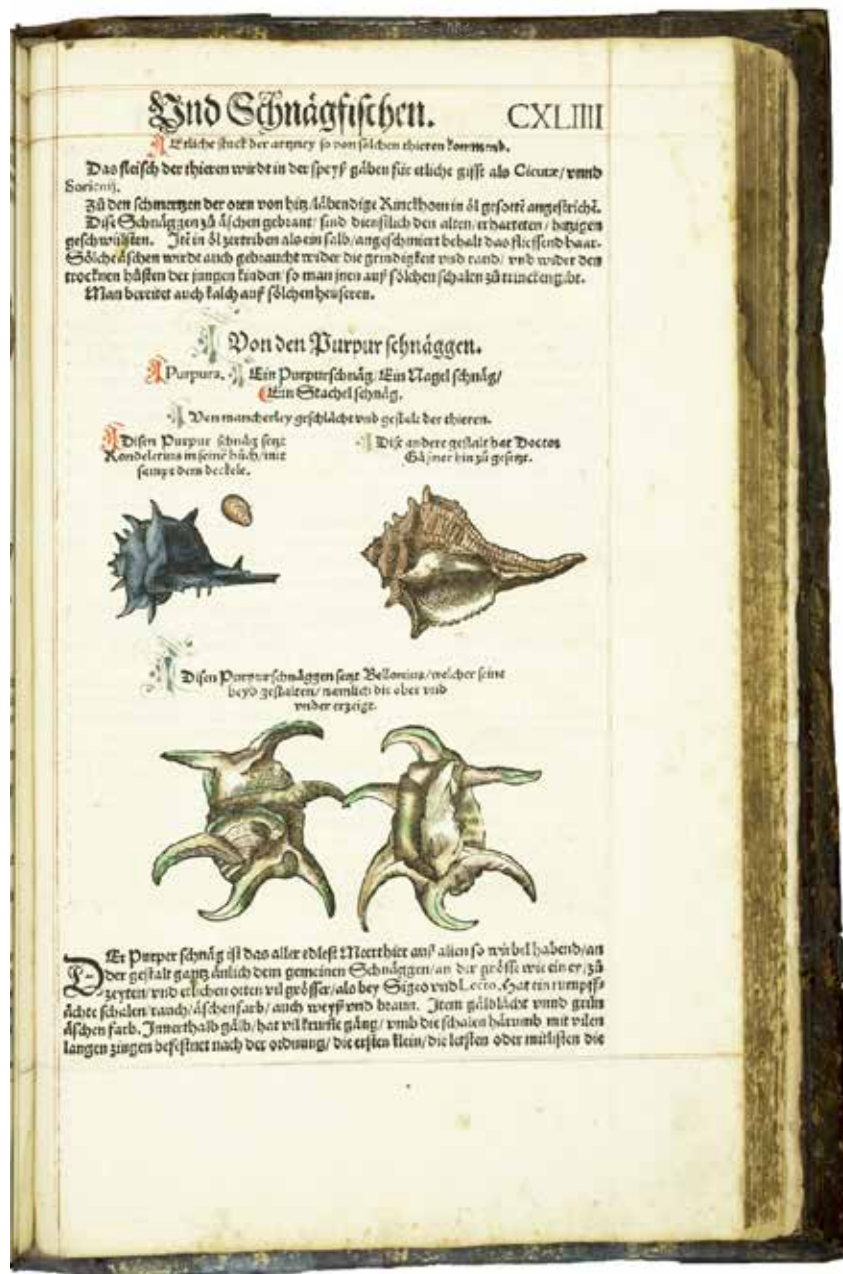 Vnd Schnägfischen. CXLIIII
Etliche stuck der artzney so von sölchen thieren kommend.
Das fleisch der thieren wirdt in der speyß gäben für etliche gifft als Cicutæ/ vnnd
Zů den schmertzen der oren von hitz/läbendige Rinckhorn in öl gesottē angestrichē.
Dise Schnäggen zů äschen gebrant/ sind dienstlich den alten/ erharteten/ hitzigen
geschwulsten. Itē in öl zertriben als ein salb/angeschmiert behalt das fliessend haar.
Sölche äschen wirdt auch gebraucht wider die grindigkeit vnd raud/ vnd wider den
trocknen hůsten der jungen kinden/ so man jnen auß sölchen schalen zů trincken gibt.
Man bereitet auch kalch auß sölchen heuseren.
Von den Purpur schnäggen.
Purpura. Ein Purpurschnäg/ Ein Nagel schnäg/
Ein Stachel schnäg.
Von mancherley geschlächt vnd gestalt der thieren.
Disen Purpur schnäg setzt
Rondeletius in seinē bůch/ mit
sampt dem deckele.
Dise andere gestalt hat Doctor
Gäßner hin zů gesetzt.
Disen Purpurschnäggen setzt Bellonius/welcher seine
beyd gestalten/ namlich die ober vnd
vnder erzeigt.
DEr Purper schnäg ist das aller edlest Meerthier auß allen so wirbel habend/an
der gestalt gantz änlich dem gemeinen Schnäggen/an der grösse wie ein ey/zů
zeyten/vnd etlichen orten vil grösser/als bey Sigeo vnd Lecto. Hat ein rumpff-
ächte schalen/rauch/äschenfarb/ auch weyß vnd braun. Item gälblächt vnnd grün
äschen farb. Innerthalb gälb/ hat vil krumme gäng/ vmb die schalen härumb mit vilen
langen zingen befestnet nach der ordnung/ die ersten klein/die letsten oder mitlisten die